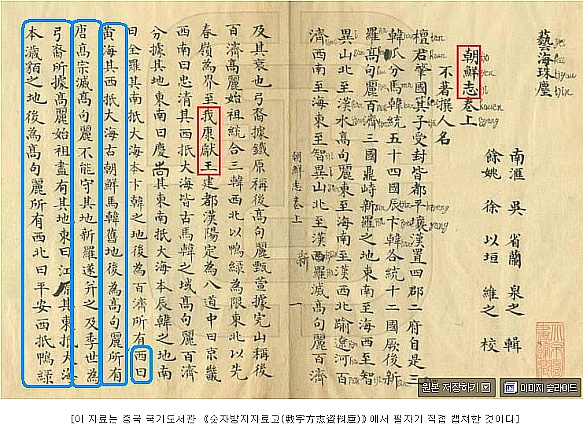 藝海珠塵
南滙 吳 省蘭 泉之 輯
餘姚 徐 以垣 維之 校
朝鮮志卷上
不著撰人名
檀君肇國箕子受封皆都平壤漢置四郡二府自是三
韓瓜分馬韓統五十四國辰卞韓各統十二國厥後新
羅高句麗百濟三國鼎峙新羅之地東南至海西至智
異山北至漢水高句麗東至海南至漢西北踰遼河百
濟西南至海東至智異山北至漢西羅滅高句麗百濟
朝鮮志卷上 新 一
及其衰也弓裔據鐵原稱後高句麗甄萱據完山稱後
百濟高麗始祖統合三韓西北以鴨綠為限東北以先
春嶺為界至我康獻王建都漢陽定為八道中曰京畿
西南曰忠清其西抵大海皆古馬韓之域高句麗百濟
分據其地東南曰慶尚其東南抵大海本辰韓之地南
曰全羅其南抵大海本卞韓之後為百濟所有西曰
黃海其西抵大海古朝鮮馬韓舊地後為高句麗所有
唐高宗滅高句麗不能守其地新羅遂并之及季世為
弓裔所據高麗始祖盡有其地東曰江原其東抵大海
本濊貊之地後為高句麗所有西北曰平安西抵鴨綠
원본 저장하기 이미지 슬라이드
[이 자료는 중국 국가도서관 《숫자방지자료고(數字方志資料庫)》에서 필자가 직접 캡쳐한 것이다]